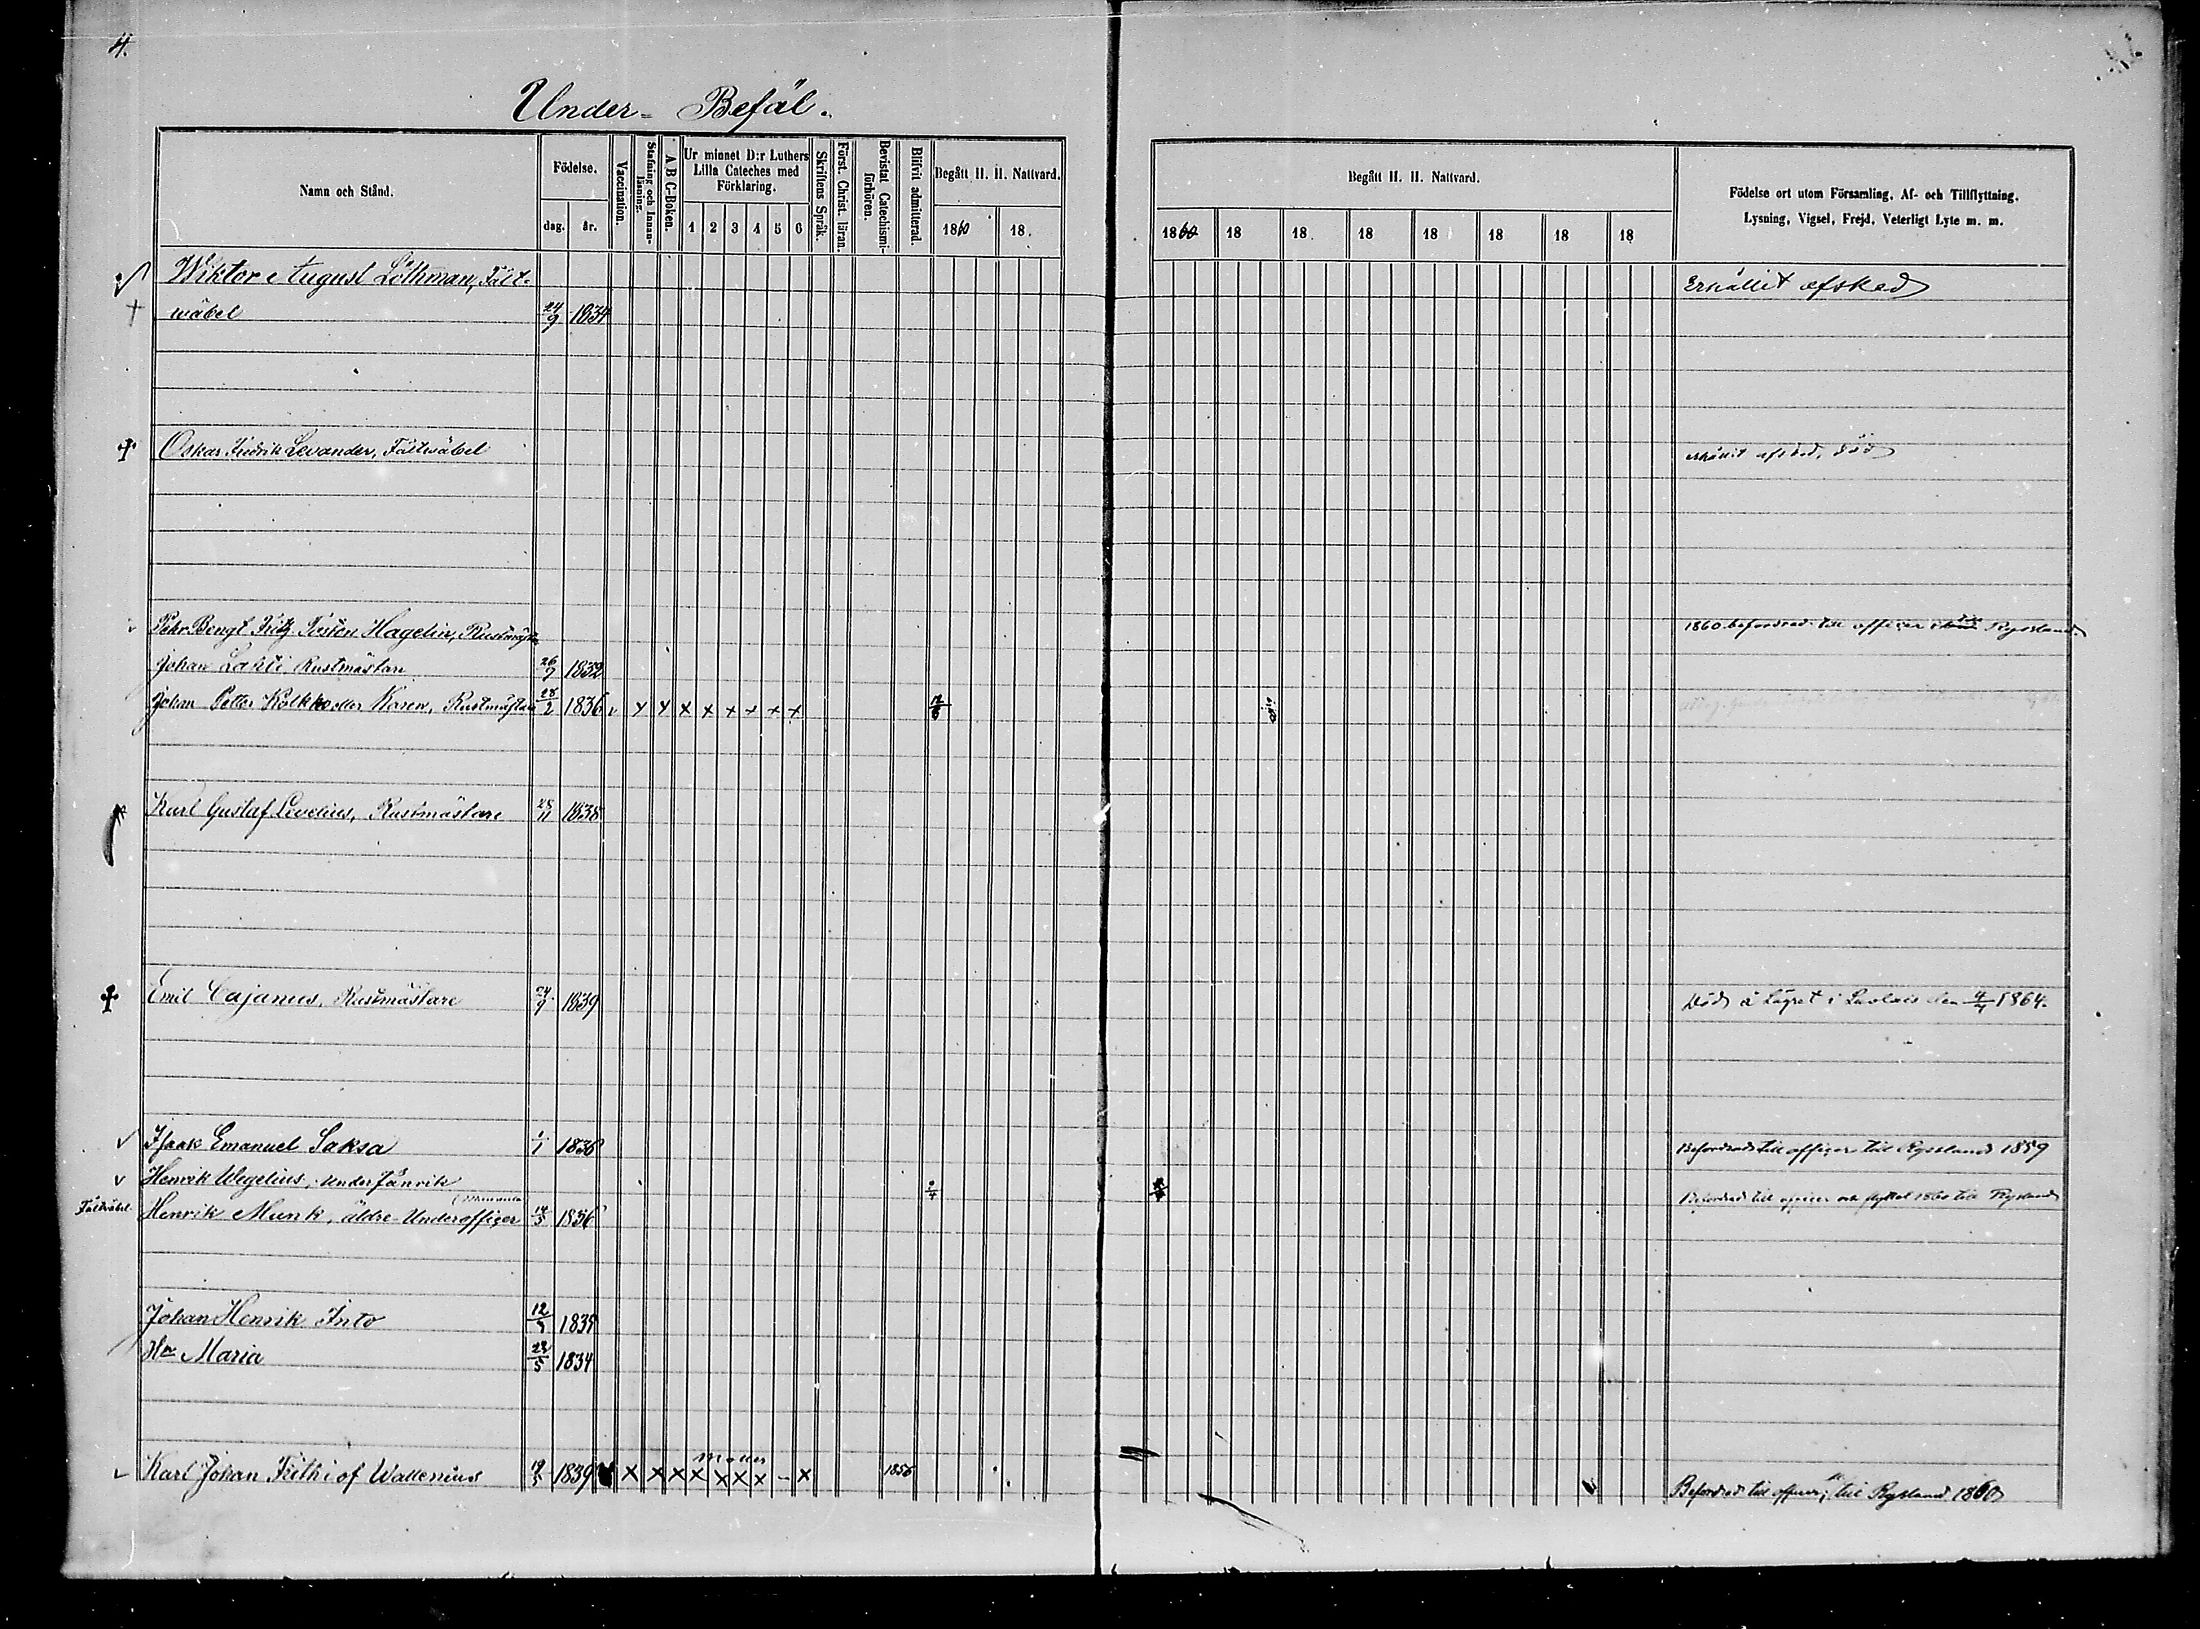 4.
Under- Befäl.
Namn och Stånd.
Födelse.
dag. år.
Vaccination.
Stafning och Innan-läsning.
A B C-Boken.
Ur minnet D:r Luthers
Lilla Cateches med
Förklaring.
1 2 3 4 5 6
Skriftens Språk.
Först. Christ. läran.
Bevistat Catechismi-förhören.
Blifvit admitterad.
Begått H. H. Nattvard.
1860 18
Begått H. H. Nattvard.
1860 18 18 18 18 18 18 18
Födelse ort utom Församling, Af- och Tillflyttning,
Lysning, Vigsel, Frejd, Veterligt Lyte m. m.
Wiktor August Löthman, Fält- Erhållit afsked
wäbel 24/9 1834
Oskar Fredrik Levander, Fältwäbel erhållit afsked, död
Pehr Bengt Fritz Hagelin, Rustmäst 1860 befordrad till officer Ryssland
Johan Lahti Rustmästare 26/9 1832
Johan Petter Kolkko eller Koren, Rustmästare 28/2 1836 v x x x x x x x x
Karl Gustaf Levelius, Rustmästare 28/11 1838
Emil Cajanus, Rustmästare 24/9 1839 Död å lägret i den 4/7 1864.
Isaak Emanuel Saksa 1/1 1836 Befordrad till officer till Ryssland 1859
Henrik Wegelius, Underfänrik Befordrad till officer och flyttat 1860 till Ryssland
Fältwäbel Henrik Munk, äldre Underofficer 1836
Johan Henrik Into 12/9 1839
Hu Maria 23/5 1834
Karl Johan Frithiof Wallenius 19/5 1839 x x x x x x x - x 1856 Befordrad till officer, till Ryssland 1860